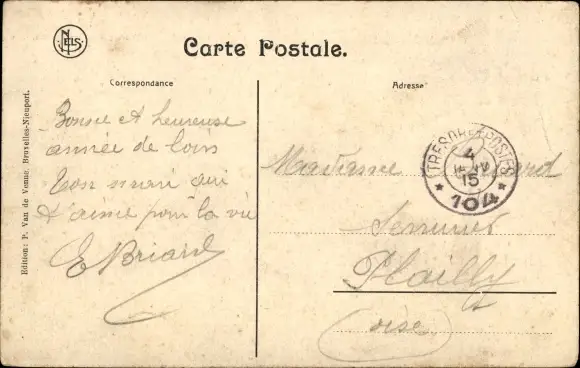 NELS
Carte Postale.
Correspondance
Adresse
Edition: P. Van de Venne, Bruxelles-Nieuport.
Bonne et heureuse
année de loin
Ton mari qui
t'aime pour la vie
E Briard
TRESOR ET POSTES
4
15
* 104 *
Madame
Plailly
oise